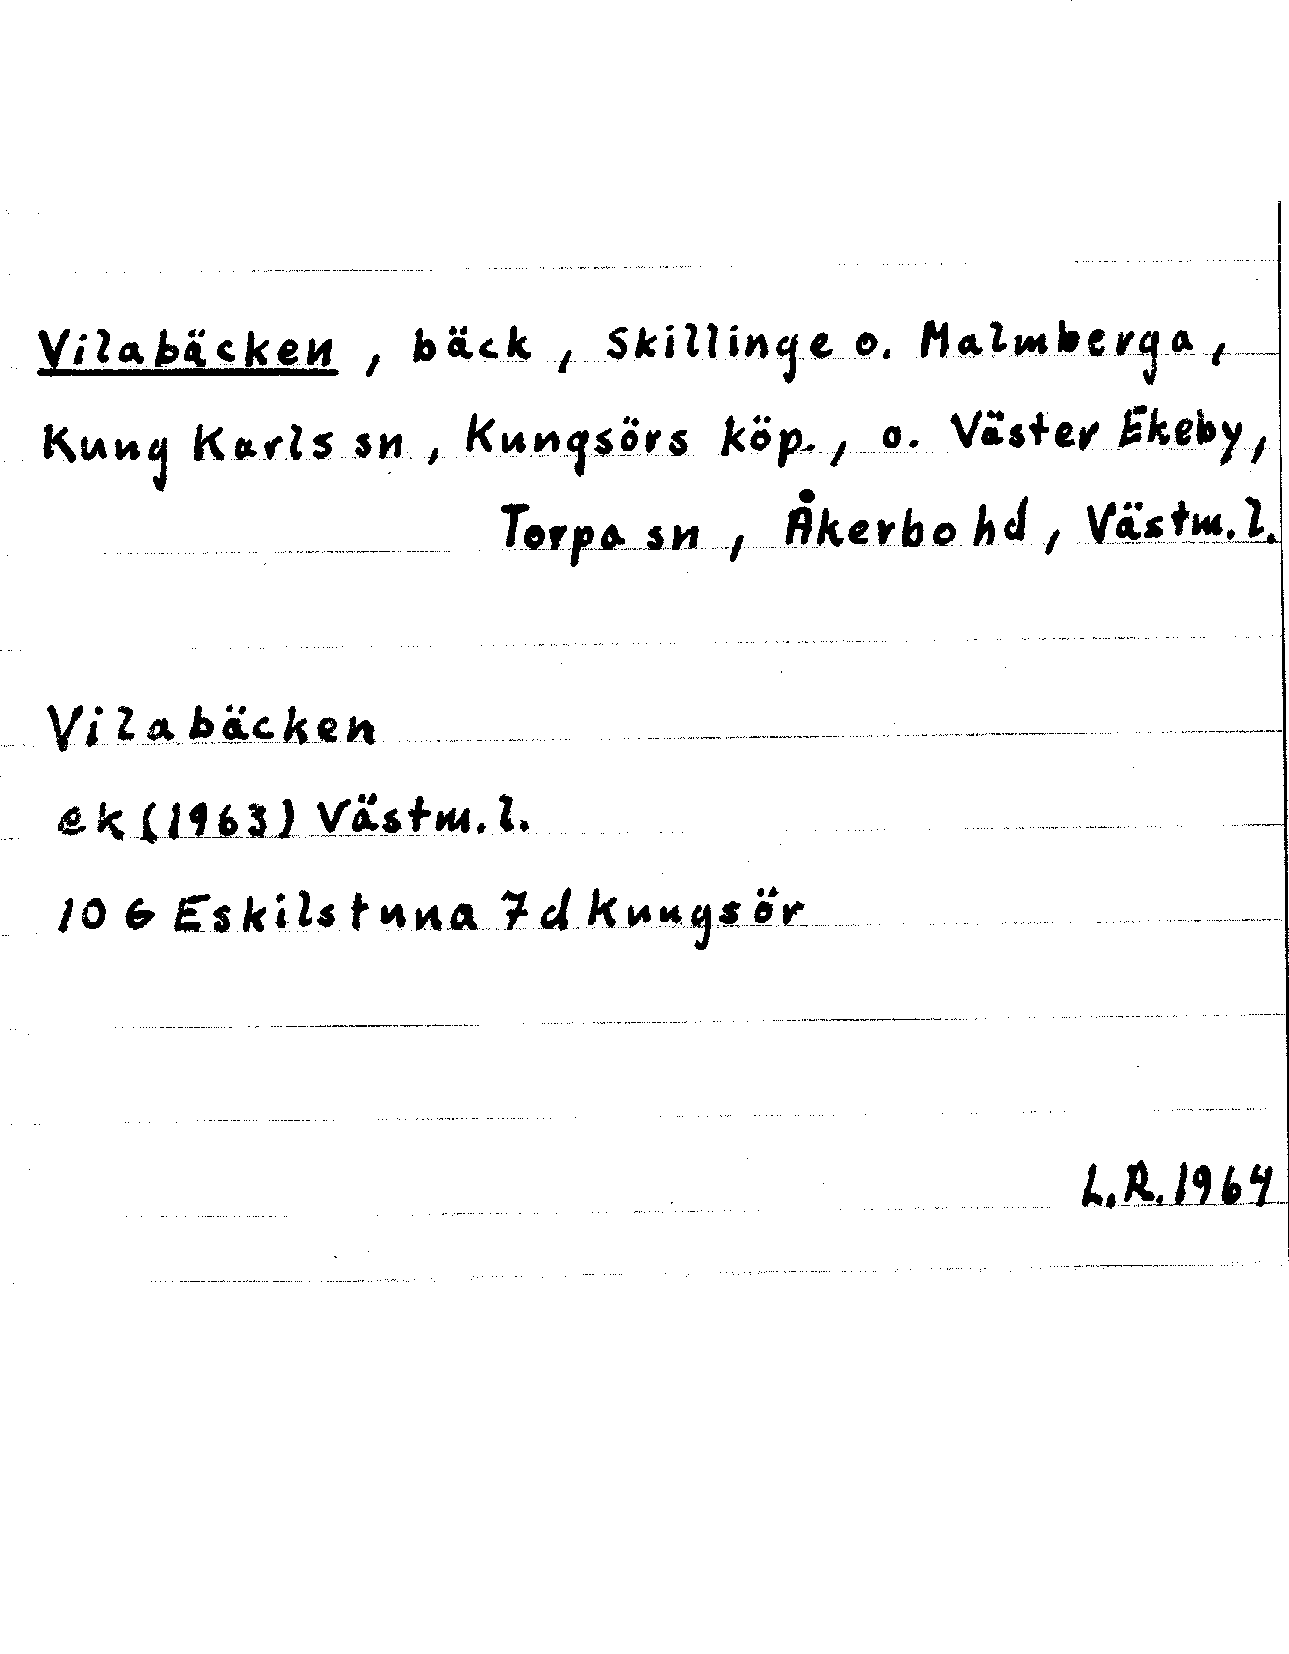 Vilabäcken, bäck, Skillinge o. Malmberga,
Kung Karls sn, Kungsörs köp., o. Väster Ekeby,
Torpa sn, Åkerbo hd, Västm.l.
Vilabäcken
ek (1963) Västm.l.
10 G Eskilstuna 7d Kungsör
L.R. 1964